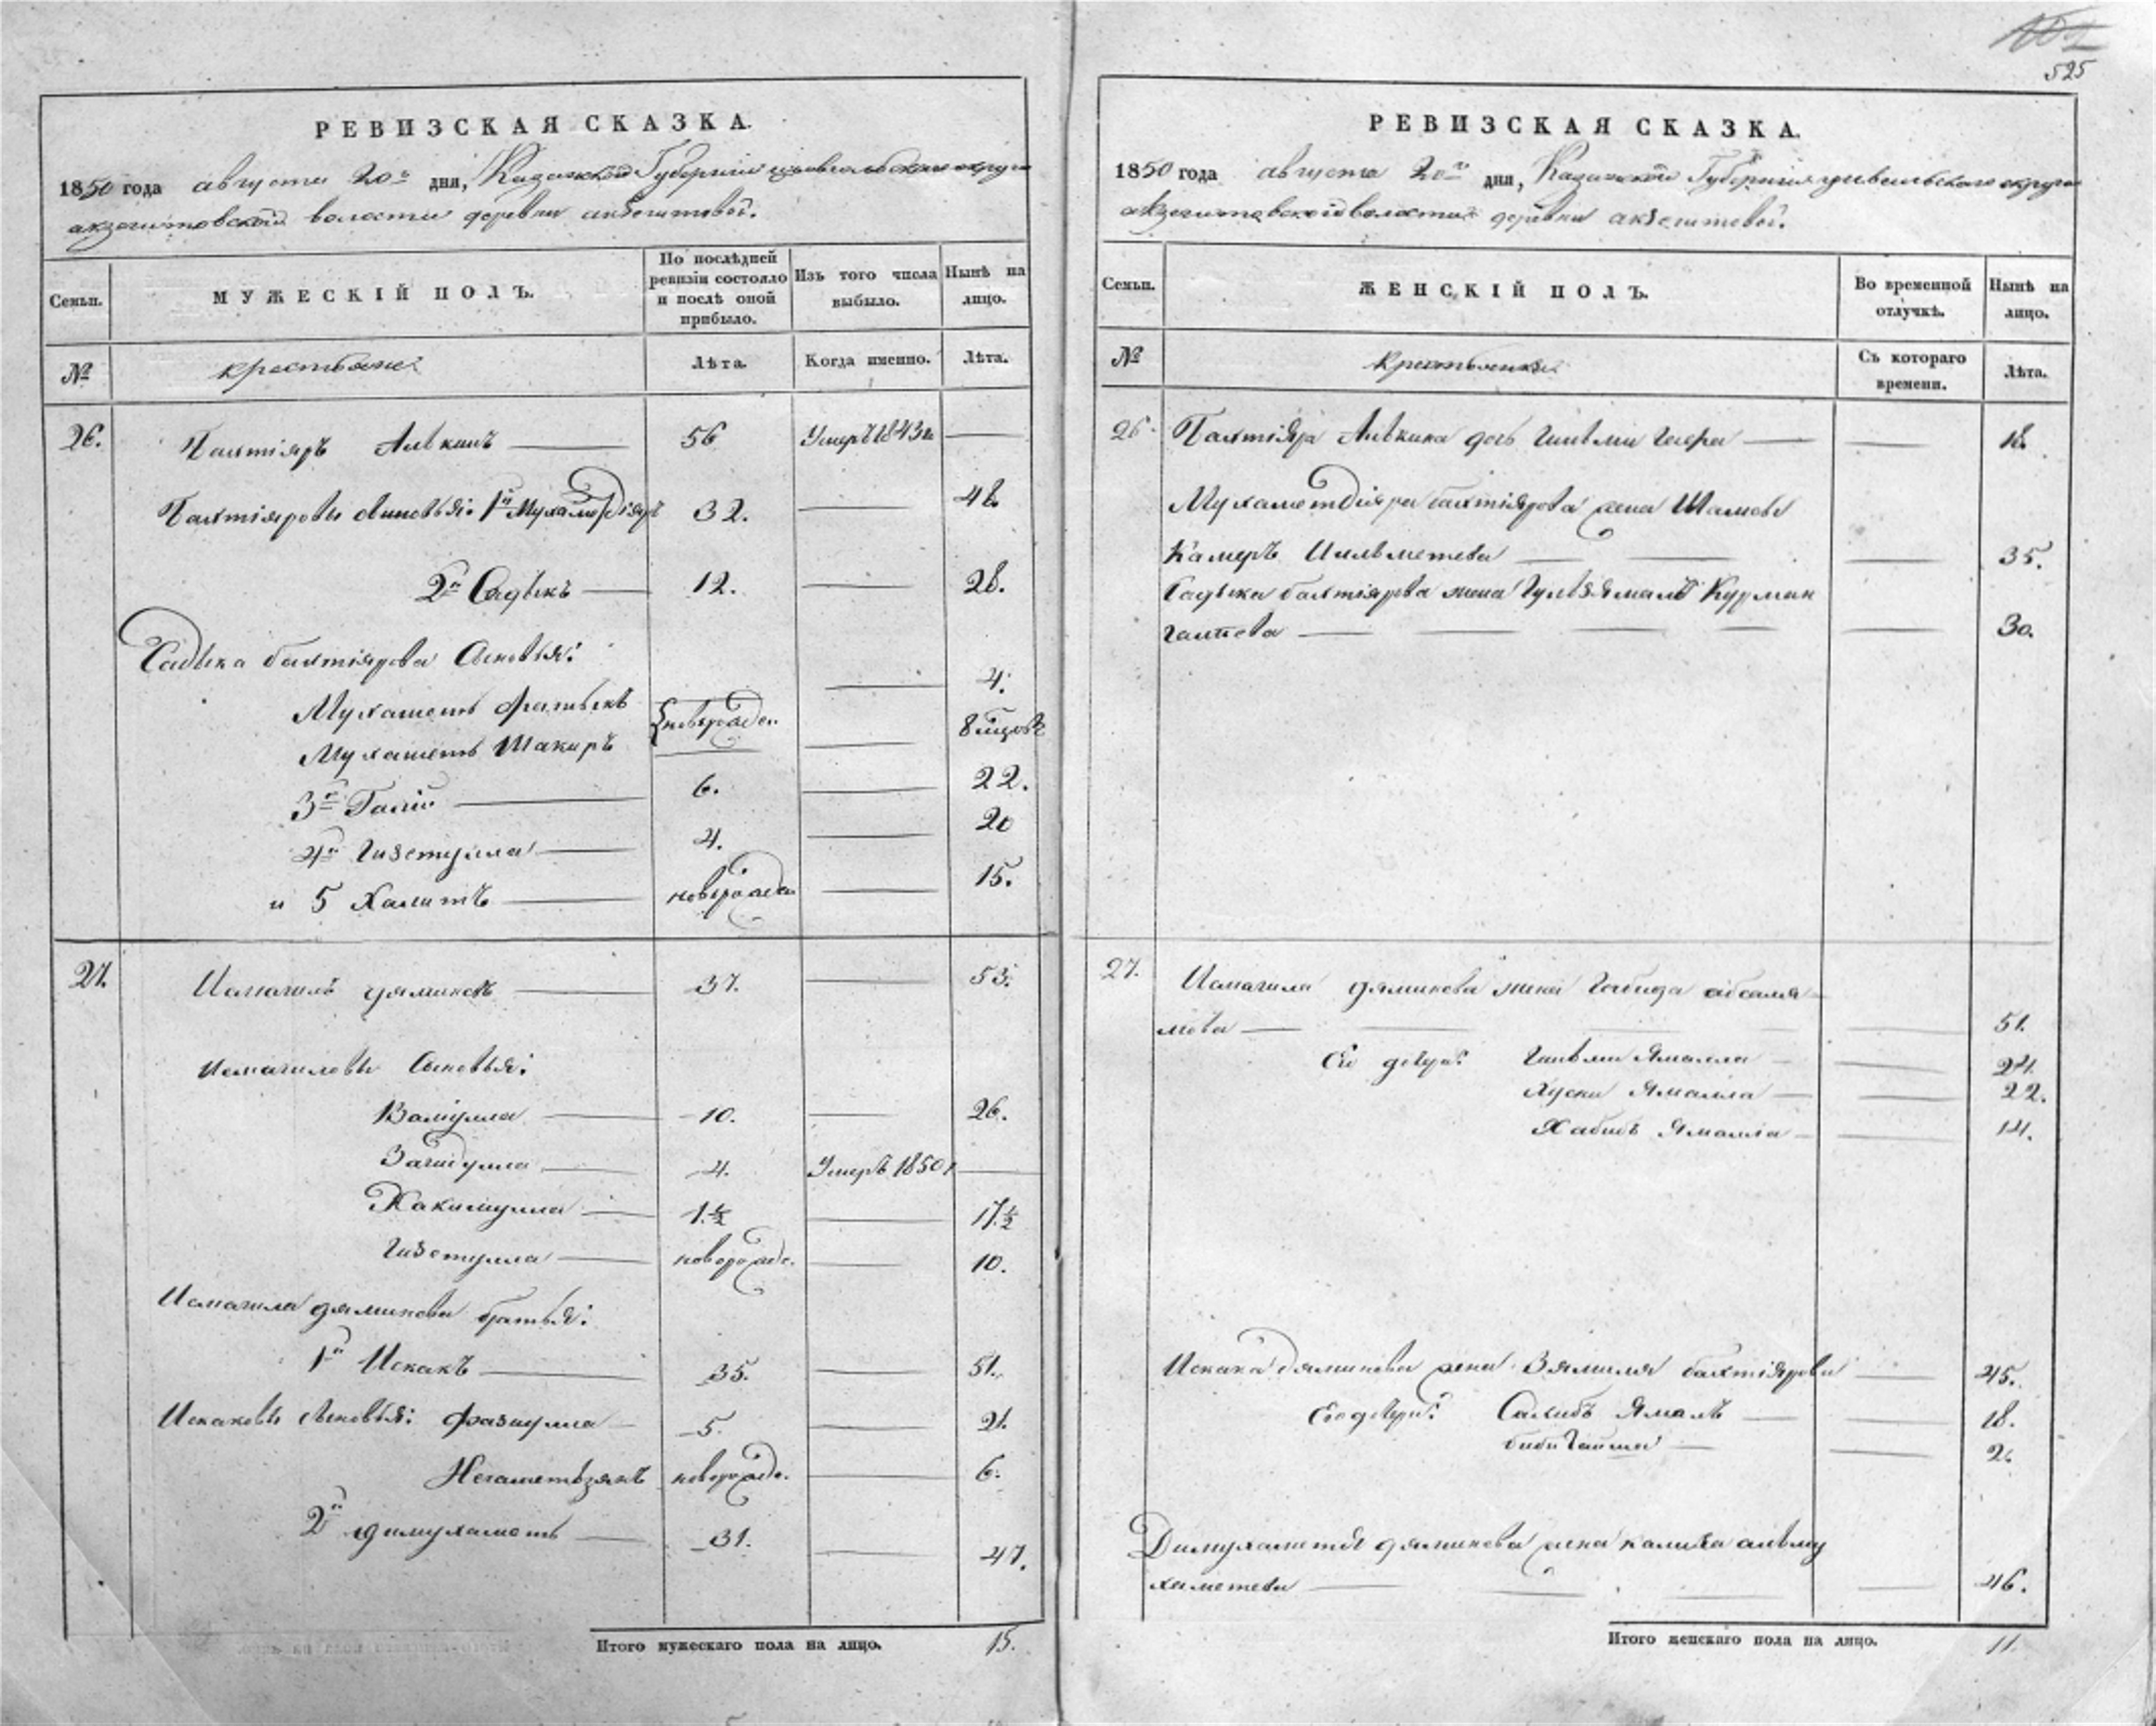 525
РЕВИЗСКАЯ СКАЗКА.
1850 года августа 20го дня, Казанской Губернии цивильскаго округа
акзегитовской волости деревни акзегитовой.
Семьи.
МУЖЕСКІЙ ПОЛЪ.
По послѣдней ревизіи состояло и послѣ оной прибыло.
Изъ того числа выбыло.
Нынѣ на лицо.
№
крестьяне
Лѣта.
Когда именно.
Лѣта.
26. Бахтіяръ Алькинъ 56 Умеръ 1843г
Бахтіяровы сыновья: 1й Мухаметдіяръ 32. 48
2й Садыкъ 12. 28.
Садыка бахтіярова Сыновья:
Мухаметь Фатыхъ новорожден. 4.
Мухаметь Шакиръ 8 мѣсяцовъ
3й Галій 6. 22.
4й Гизетулла 4. 20
и 5 Халитъ новорожден 15.
27. Исмагилъ доминовъ 37. 53.
Исмагиловы Сыновья:
Валіулла 10. 26.
Загидулла 4. Умеръ 1850г
Хакимулла 1.½ 17.½
Гизетулла новорожде. 10.
Исмагила доминова братья:
1й Искакъ 35. 51.
Искаковы сыновья: Фазлулла 5. 21.
Негаметзянъ новорожде. 6.
2й димухаметь 31. 47.
Итого мужескаго пола на лицо. 15.
РЕВИЗСКАЯ СКАЗКА.
1850 года августа 20го дня, Казанской Губерніи цивильскаго округа
акзегитовской волости деревни акзегитовой.
Семьи.
ЖЕНСКІЙ ПОЛЪ.
Во временной отлучкѣ.
Нынѣ на лицо.
№
крестьянки
Съ котораго времени.
Лѣта.
26. Бахтіяра Алькина дочь 18.
Мухаметдіяра бахтіярова жена Шамсы
Камеръ Ильметева 35.
Садыка бахтіярова жена Гульзямалъ Курман
галіева 30.
27. Исмагила доминова жена Габида абсаля
мова 51.
Его дочери: Гильми Ямалла 24.
Хусни Ямалла 22.
Хабибъ Ямалла 14.
Искака доминова жена Зямиля бахтіярова 45.
Его дочери: Сахибъ Ямалъ 18.
биби Гайша 2.
Димухаметя доминова жена алиму
хаметева 46.
Итого женскаго пола на лицо. 11.